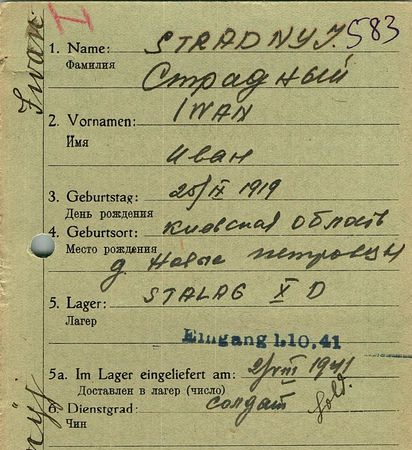 583
I
1. Name: STRADNYJ.
Фамилия Страдный
2. Vornamen: IWAN
Имя
Иван
3. Geburtstag: 25/IX 1919
День рождения
4. Geburtsort: Киевская область
Место рождения д. Новые Петровцы
5. Lager: STALAG X D
Лагер
Eingang 1.10.41
5a. Im Lager eingeliefert am: 2/VIII 1941
Доставлен в лагер (число)
6. Dienstgrad: солдат Sold.
Чин
Iwan